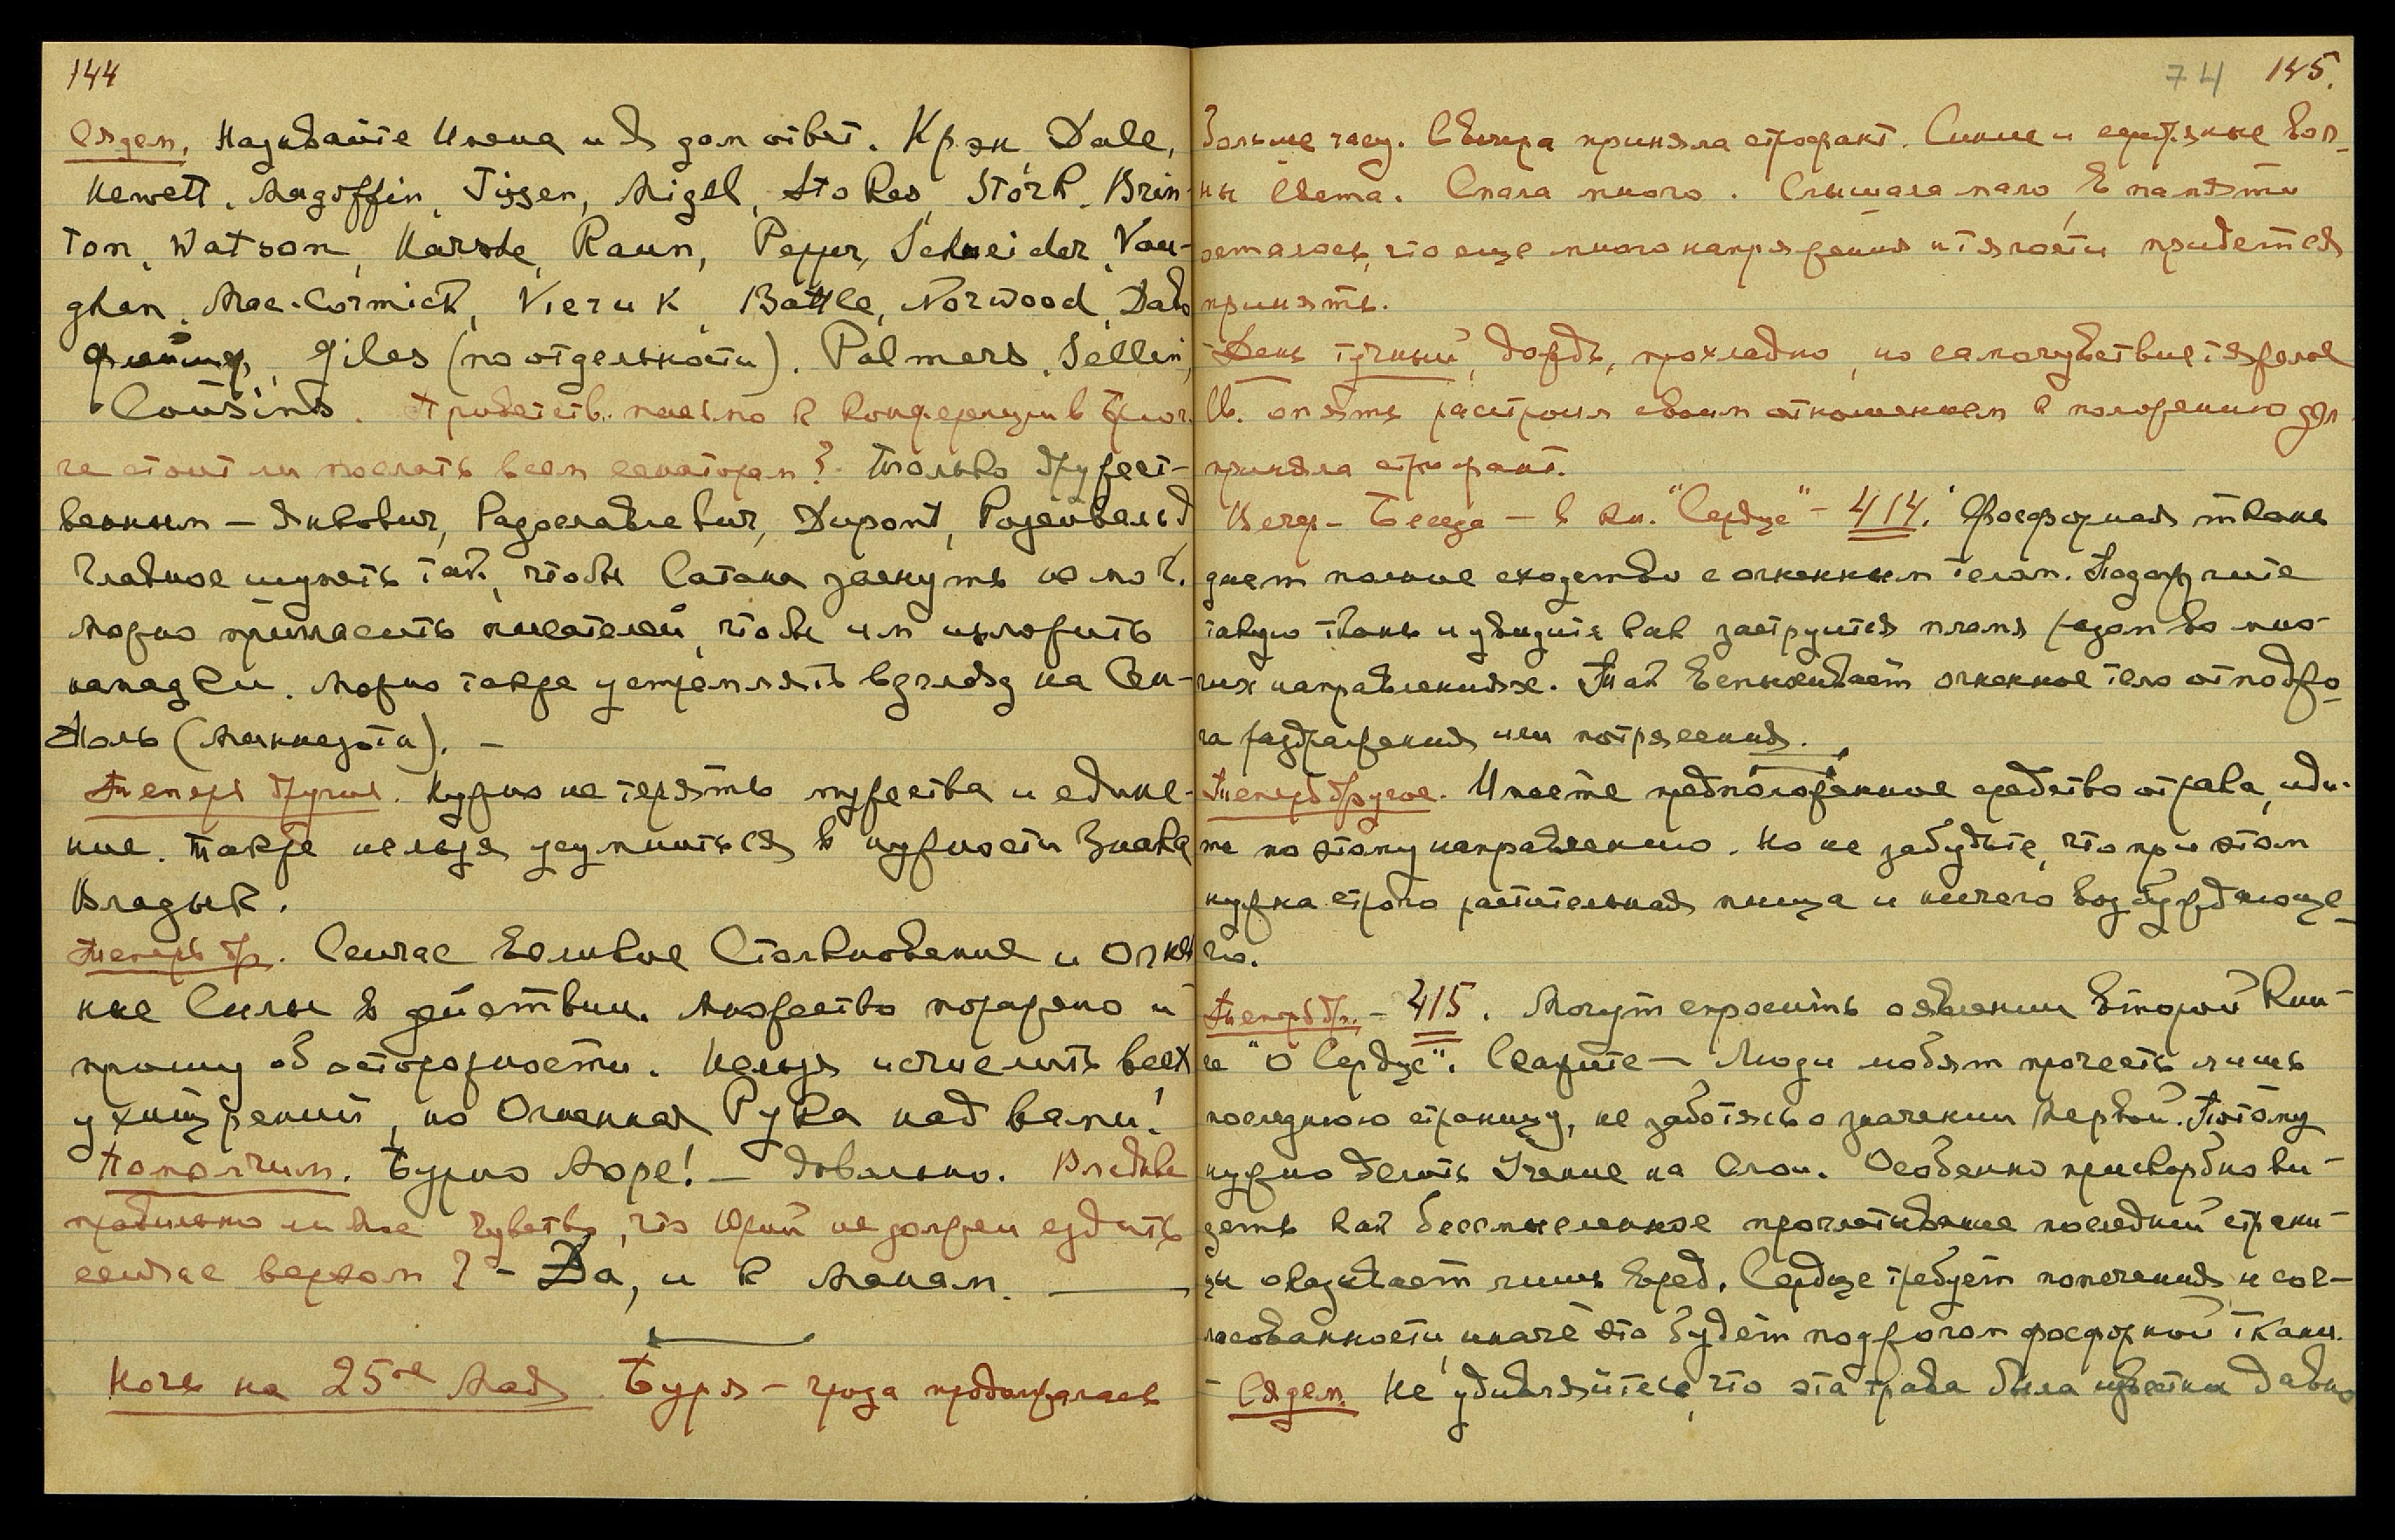 144
Сядем. Называйте Имена и Я дам ответ. Крэн, Dale,
Hewett, Magoffin, Jissen, Migel, Stokes, Stork, Brin-
ton, Watson, Karsde, Raun, Pepper, Schneider, Vau-
ghan, Mac-Cormick, Vieruk, Battle, Norwood,
Giles (по отдельности). Palmers, Sellin,
Cousins. Приветств. письмо к конференции в Брюг-
ге стоит ли послать всем сенаторам? Только дружест-
венным – Янкович, Радославлевич, Dupont, Розенвальд
Главное шуметь так, чтобы Сатана заснуть не мог.
Можно пригласить писателей, чтобы им изложить
нападки. Можно также устремлять взгляд на Сен-
Поль (Миннезоти). –
Теперь другие. Нужно не терять мужества и едине-
ние. Также нельзя усумниться в нужности Знака
Владык.
Теперь др. Сейчас Великое Столкновение и Огнен
ные Силы в действии. Множество поражено и
прошу об осторожности. Нельзя исчислить всех
ухищрений, но Огненная Рука над вами!
Помолчим. Бурно Море! – довольно. Владыка
правильно ли мое чувство, что Юрий не должен ездить
сейчас верхом? – Да, и к Манам. —
Ночь на 25ое Мая. Буря – гроза продолжалась
74 145.
больше часу. С вечера приняла строфант. Синие и серебряные вол-
ны Света. Спала много. Слышала мало, в памяти
осталось, что еще много напряжения и тягости придется
принять.
День тучный, дождь, прохладно, но самочувствие тяжелое
опять расстроил своим отношением к положению дел.
приняла строфант.
Вечер – Беседа – в кн. "Сердце" – 414. Фосфорная ткань
днем полное сходство с огненным телом. Подожгите
такую ткань и увидите как заструится пламя разом во мно-
гих направлениях. Так вспыхивает огненное тело от поджо-
га раздражения или потрясения.
Теперь другое. Имеете предположенное средство отрава, иди-
те по этому направлению. Но не забудьте, что при этом
нужна строго растительная пища и ничего возбуждающе-
го.
Теперь др. – 415. Могут спросить о явлении второй Кни-
ге "О Сердце". Скажите – Люди любят прочесть лишь
последнюю страницу, не заботясь о значении первой. Потому
нужно делить Учение на Слои. Особенно прискорбно ви-
деть как бессмысленное проглатывание последней страни-
цы оказывает лишь вред. Сердце требует попечения и сог-
ласованности, иначе это будет поджогом фосфорной ткани.
– Сядем. Не удивляйтесь, что эта трава была известна давно